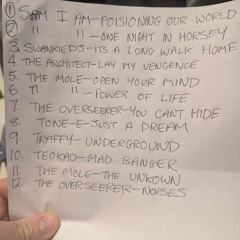 ① SAM I AM-POISIONING OUR WORLD
② " " -ONE NIGHT IN HORSEY
3. SWANKIEDJ-ITS A LONG WALK HOME
4. THE ARCHITECT-LAY MY VENGENCE
5. THE MOLE-OPEN YOUR MIND
6. " " -POWER OF LIFE
7. THE OVERSEERER-YOU CANT HIDE
8. TONE-E-JUST A DREAM
9. TRAFFY-UNDERGROUND
10. TEOKAO-MAD BANGER
11. THE MOLE-THE UNKOWN
12 THE OVERSEERER-NOISES